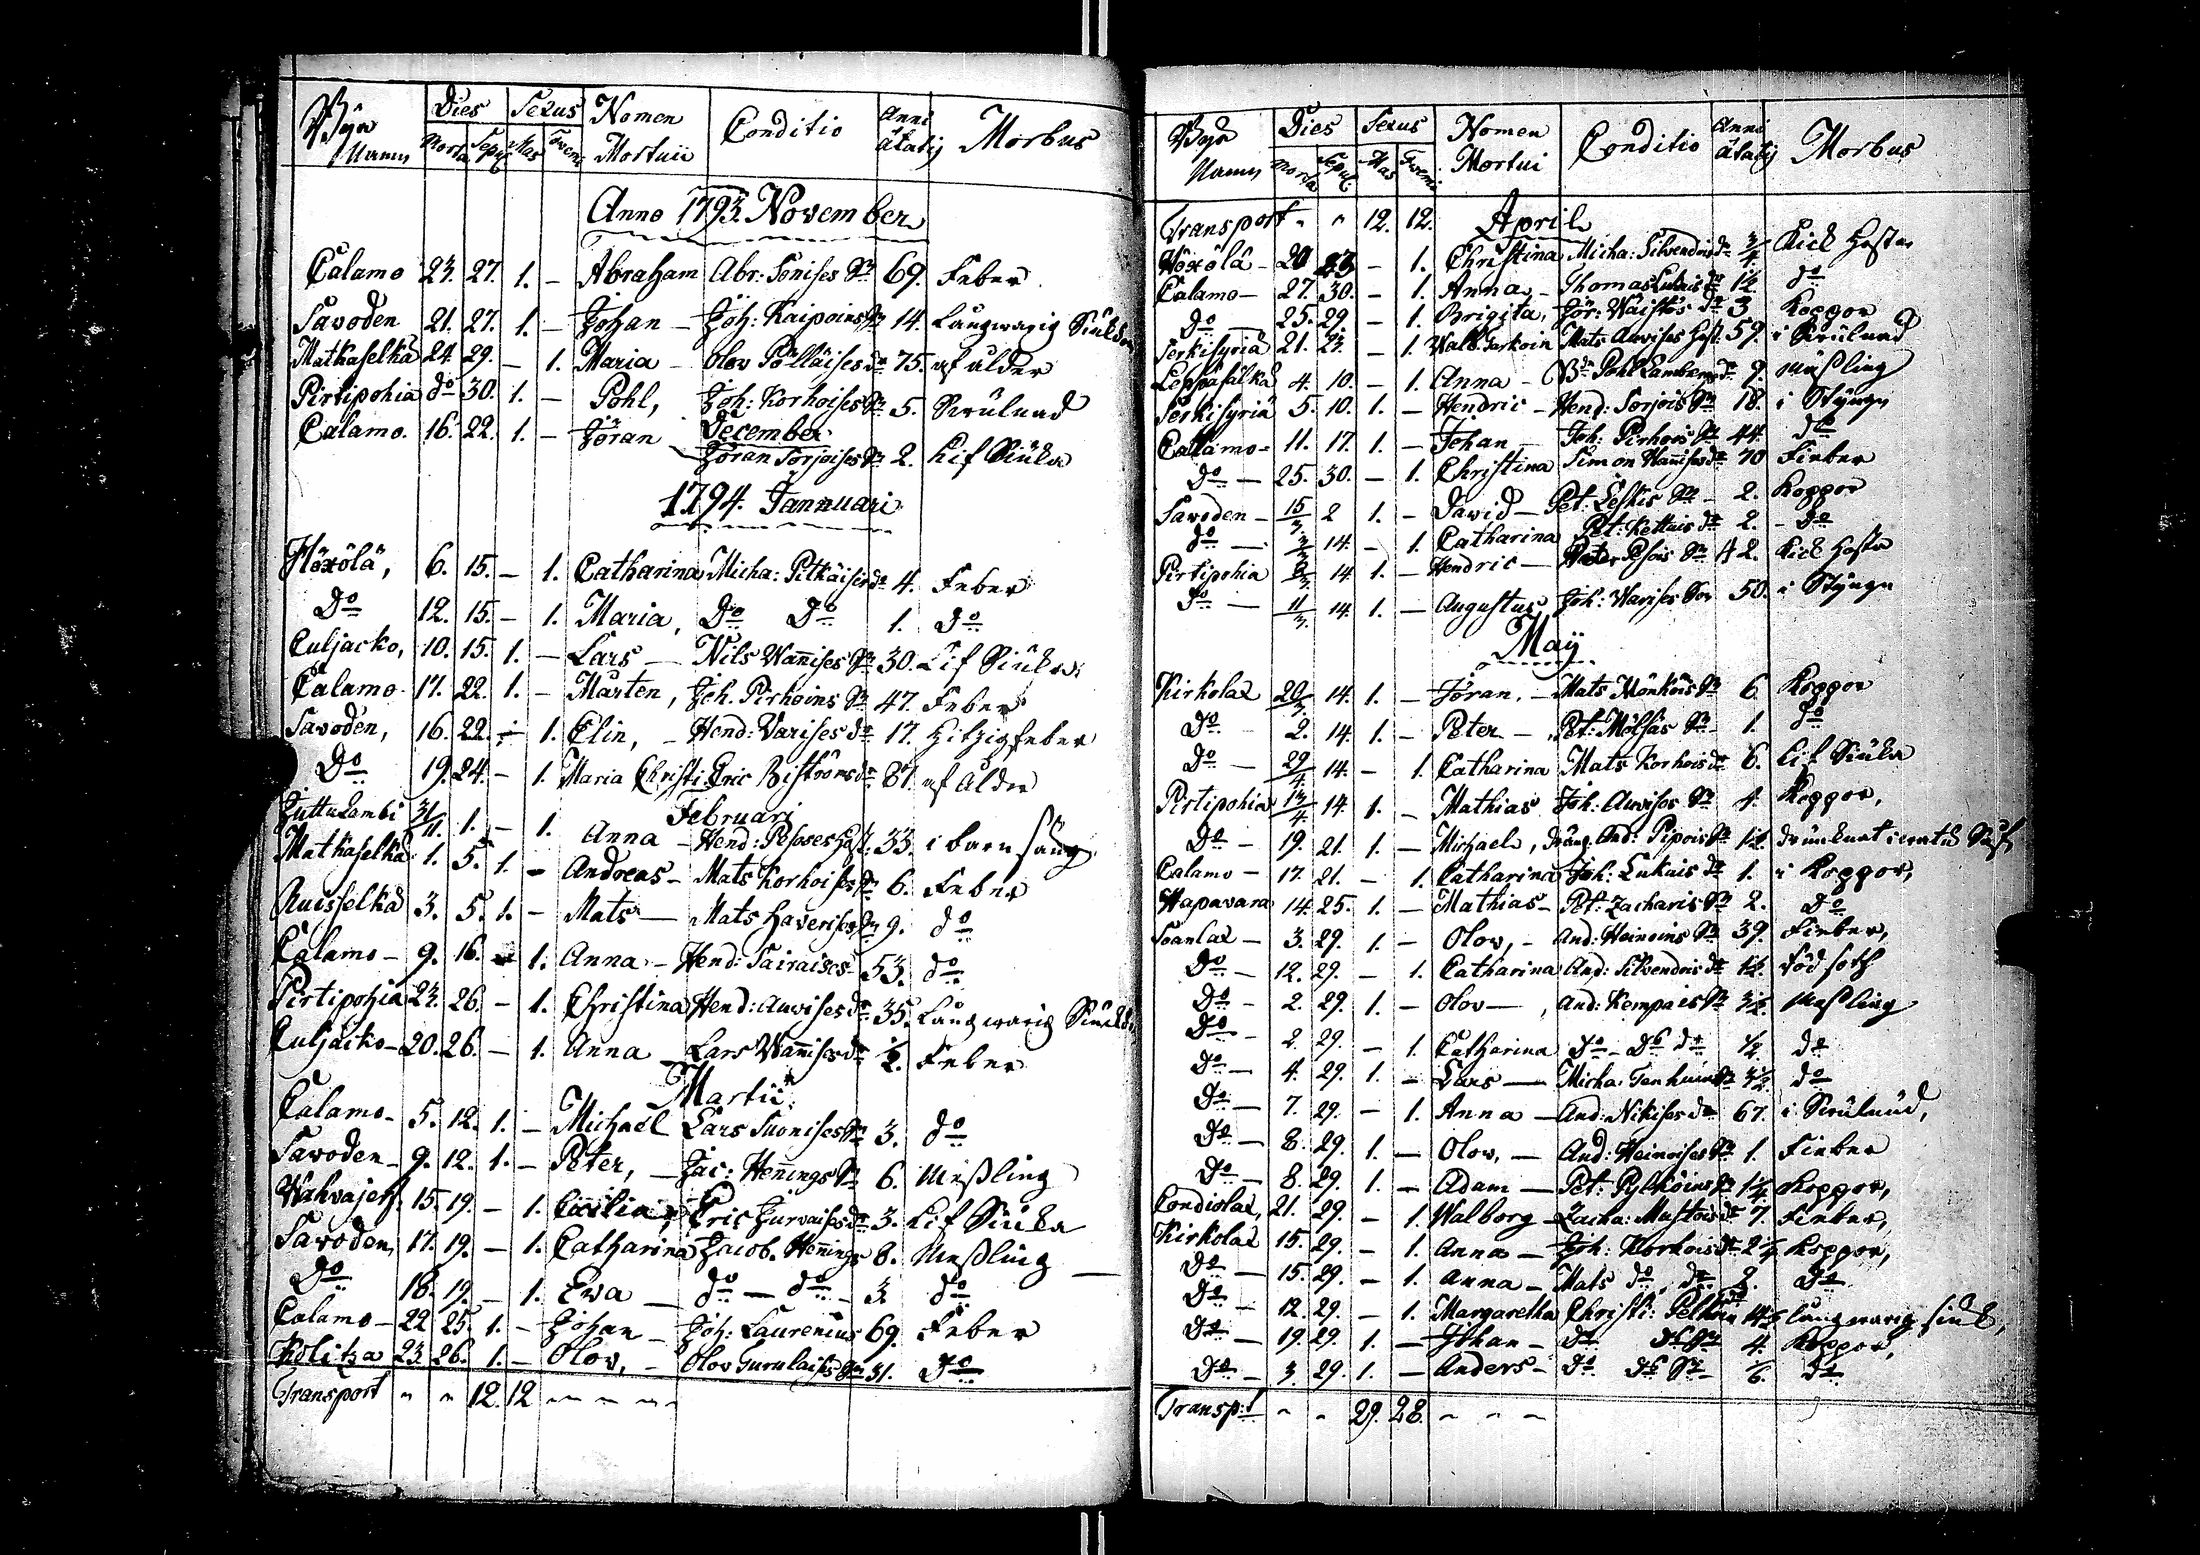 Byn Namn Dies Sexus Nomen Mortuii Conditio Anni ätatis Morbus
Morta Sepul Mas Foemi
Anno 1793. November
Calamo 23. 27. 1. – Abraham Abr: Sonises Sn 69. Feber
Savoden 21. 27. 1. – Johan – Joh: Kaipoins Sn 14. Långwarig Siukdom
Mathaselkä 24. 29. – 1. Maria – Olov Pölläises dr 75. af ålder
Pirtipohia do 30. 1. – Pohl, Joh: Korhoises Sn 5.
December
Calamo. 16. 22. 1. – Jöran Jöran Sorjoises Sn 2. Lif Siuka
1794. Jannuari
Höxölä, 6. 15. – 1. Catharina Micha: Pitkäises dr 4. Feber
Do 12. 15. – 1. Maria, Do Do 1. Do
Culjacko, 10. 15. 1. – Lars – Nils Wannises Sn 30. Lif Siuka
Calamo. 17. 22. 1. – Mårten, Joh. Pirhoins Sn 47. Feber
Savoden, 16. 22. – 1. Elin, – Hend: Varises dr 17. Hitzig feber
Do 19. 24. – 1. Maria Christi. Eric Biströms dr 81. af Ålder
Februari
31/11. 1. – 1. Anna – Hend: Pesoses Hust. 33. i barn säng
Mathaselkä 1. 5. 1. – Andreas – Mats Korhoises Sn 6. Feber
Ruisselkä 3. 5. 1. – Mats – Mats Haverises Sn 9. do
Calamo – 9. 16. – 1. Anna – Hend: Sairaises 53. do
Pirtipohia 23. 26. – 1. Christina Hend: Auvises dr 35. Långwarig
Culjacko – 20. 26. – 1. Anna Lars Wannises dr 1/2. Feber
Martii
Calamo – 5. 12. 1. – Michaël Lars Suonises Sn 3. do
Savoden – 9. 12. 1. – Peter, – Jac: Hennings Sn 6. Meßling
15. 19. – 1. Cecilia, Eric Hurvaises dr 3. Lif Siuka
Savoden, 17. 19. – 1. Catharina Jacob. Hennings 8. Meßling
Do 18. 19. – 1. Eva – do – do – 3. do
Calamo – 22 25. 1. – Johan – Joh: Laurenius 69. Feber
Kolitza 23. 26. 1. – Olov, – Olov Gurulaises Sn 31. Do
Transport " " 12. 12
Byn Namn Dies Sexus Nomen Mortui Conditio Anni ätatis Morbus
Morta Sepul. Mas Foemi
Transport " " 12. 12. April
Höxölä – 20 23 – 1. Christina Micha: Silvendrois dr 3/4. Kick Hosta
Calamo – 27. 30. – 1. Anna – Thomas Lukais dr 1/2 do
do – 25. 29. – 1. Brigita, Jör: Wäistös dr 3 Koppor
Serkisyriä 21. 23. – 1. Mats Auvises Hust. 59.
Leppäsälkä 4. 10. – 1. Anna – dr 9. Mäßling
Serkisyriä 5. 10. 1. – Hendric – Hend: Sorjois Sn 18. i Styngn
Calamo – 11. 17. 1. – Johan – Joh: Pirhois Sn 44. do
do – 25. 30. – 1. Christina Simon Wannises dr 70 Feeber
Savoden – 15/3 2 1. – David – Pet: Leskis Sn – 2. Koppor
do – 14. – 1. Catharina Pet: Kettuis dr 2. – do
Pirtipohia 14 1. – Hendric – Peter Pesois Sn 42. Kick Hosta
do – 11/3. 14. 1. – Augustus, Joh: Varises Son 50. i Styngn
May
Kirkolax 14. 1. – Jöran. – Mats Mönköis Sn 6. Koppor
Do – 2. 14. 1. – Peter – Pet: Mölsäs Sn – 1. do
Do – 29/4 14. – 1. Catharina Mats Korhois dr 6. Lif Siuka
Pirtipohia 13/4 14. 1. – Mathias Joh: Auvises Sn 4. Koppor,
Do – 19. 21. 1. – Michael, And: Pipois Sn
Calamo – 17. 21. – 1. Catharina Joh: Lukais dr 1. i Koppor,
Hapavara 14. 25. 1. – Mathias – Pet: Zacharis Sn 2. Do
Soanlax – 3. 29. 1. – Olov, – And: Heinoins Sn 39. Feeber,
Do – 12. 29. – 1. Catharina And: Silvendrois dr
Do – 2. 29. 1. – Olov –, And: Kempais Sn Meßling
Do – 2. 29. – 1. Catharina Do – Do dr 1/2 do
Do – 4. 29. 1. – Lars – Micha: Tenhuins Sn do
Do – 7. 29. – 1. Anna – And: Nikises dr 67.
Do – 8. 29. 1. – Olov, – And: Heinoises Sn 1. Feeber
Do – 8. 29. 1. – Adam – Pet: Pylköins Sn 1 1/4. Koppor,
Condiolax, 21. 29. – 1. Walborg – Zacha: Mustois dr 7. Feeber,
Kirkolax 15. 29. – 1. Anna – Joh: Korhois dr Koppor,
Do – 15. 29. – 1. Anna – Mats do, dr 2. Do
Do – 12. 29. – 1. Margaretha Christi: långwarig siuk,
Do – 19. 29. 1. – Johan – do do Sn 4. Koppor,
Do – 3. 29. 1. – Anders – Do do Sn – do
Transp:t " " 29. 28.